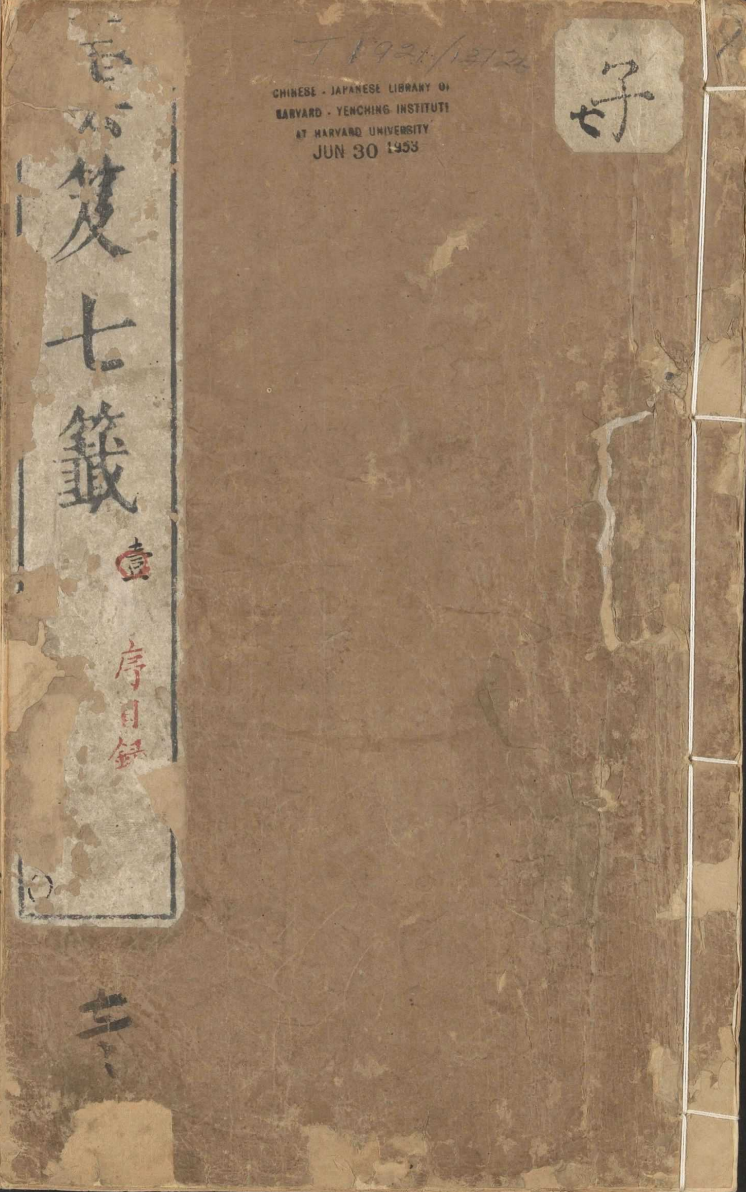 子
七
CHINESE - JAPANESE LIBRARY OF
HARVARD - YENCHING INSTITUTE
AT HARVARD UNIVERSITY
JUN 30 1953
笈七籤
壹
序目録